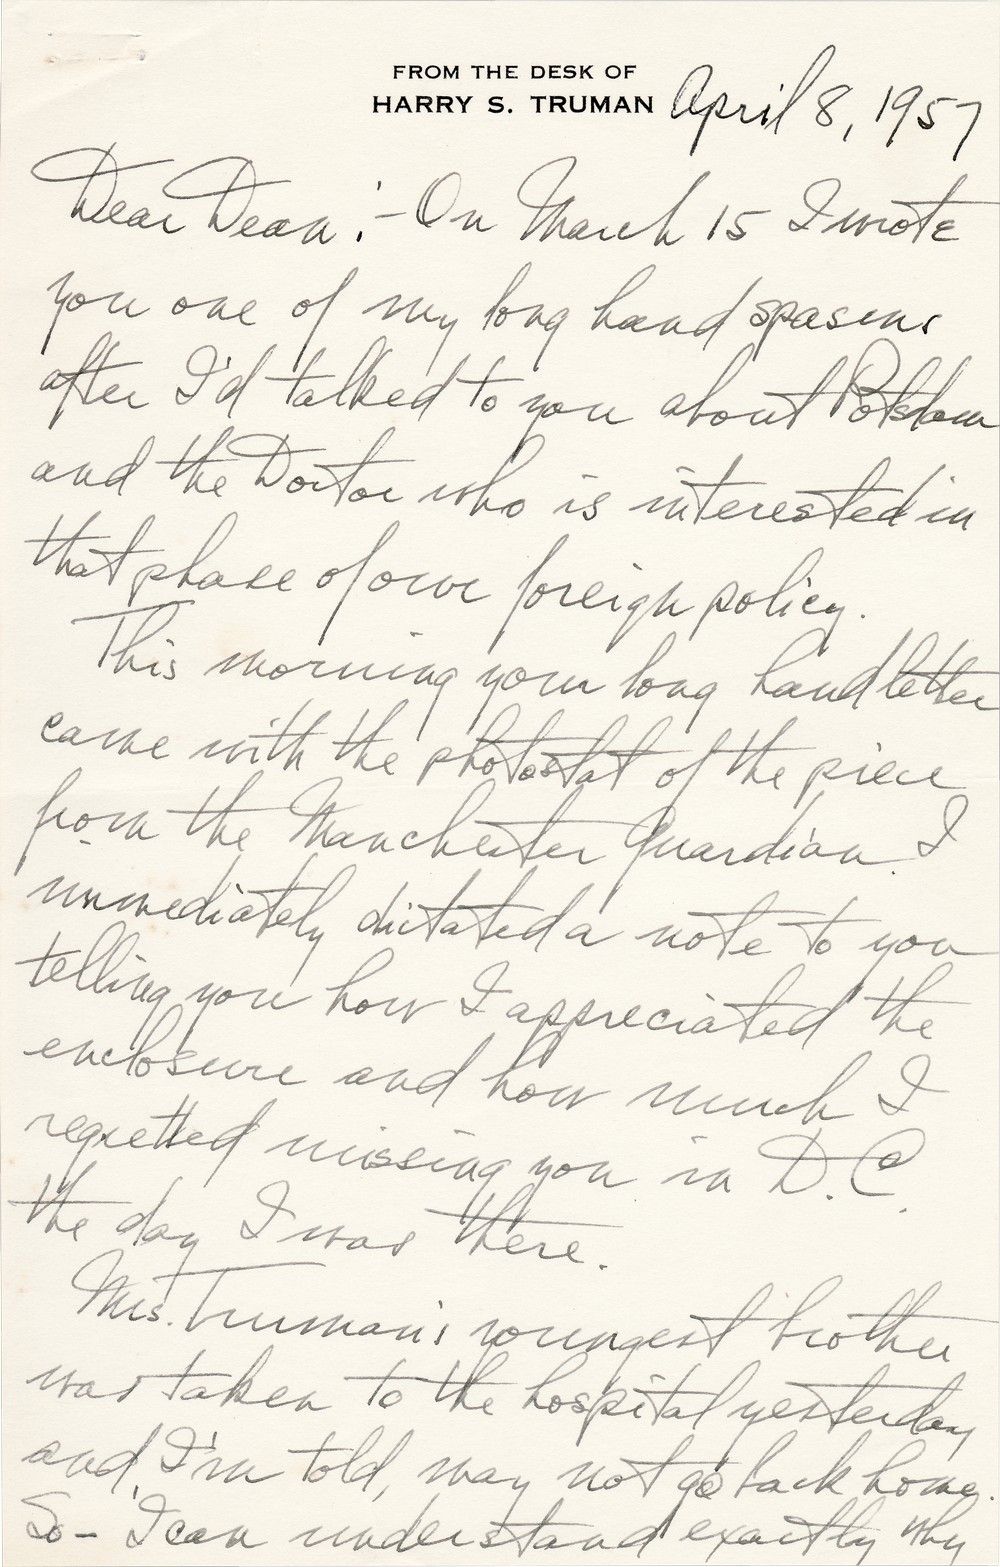 FROM THE DESK OF
HARRY S. TRUMAN
April 8, 1957
Dear Dean:- On March 15 I wrote
you one of my long hand spasms
after I'd talked to you about Potsdam
and the Doctor who is interested in
that phase of our foreign policy.
This morning your long hand letter
came with the photostat of the piece
from the Manchester Guardian. I
immediately dictated a note to you
telling you how I appreciated the
enclosure and how much I
regretted missing you in D.C.
the day I was there.
Mrs. Truman's youngest brother
was taken to the hospital yesterday
and, I'm told, may not go back home.
So - I can understand exactly why